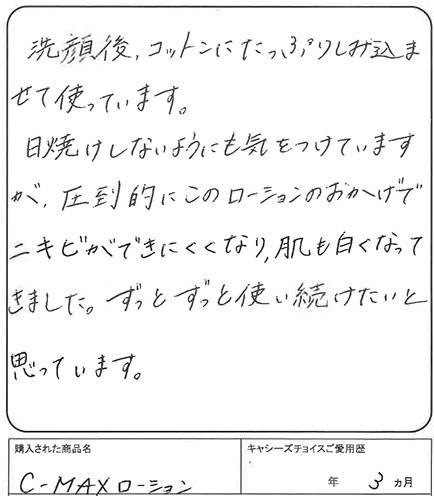 洗顔後、コットンにたっぷりしみ込ま
せて使っています。
日焼けしないようにも気をつけています
が、圧到的にこのローションのおかげで
ニキビができにくくなり、肌も白くなって
きました。ずっとずっと使い続けたいと
思っています。
購入された商品名
キャシーズチョイスご愛用歴
C-MAXローション
年 3 ヵ月